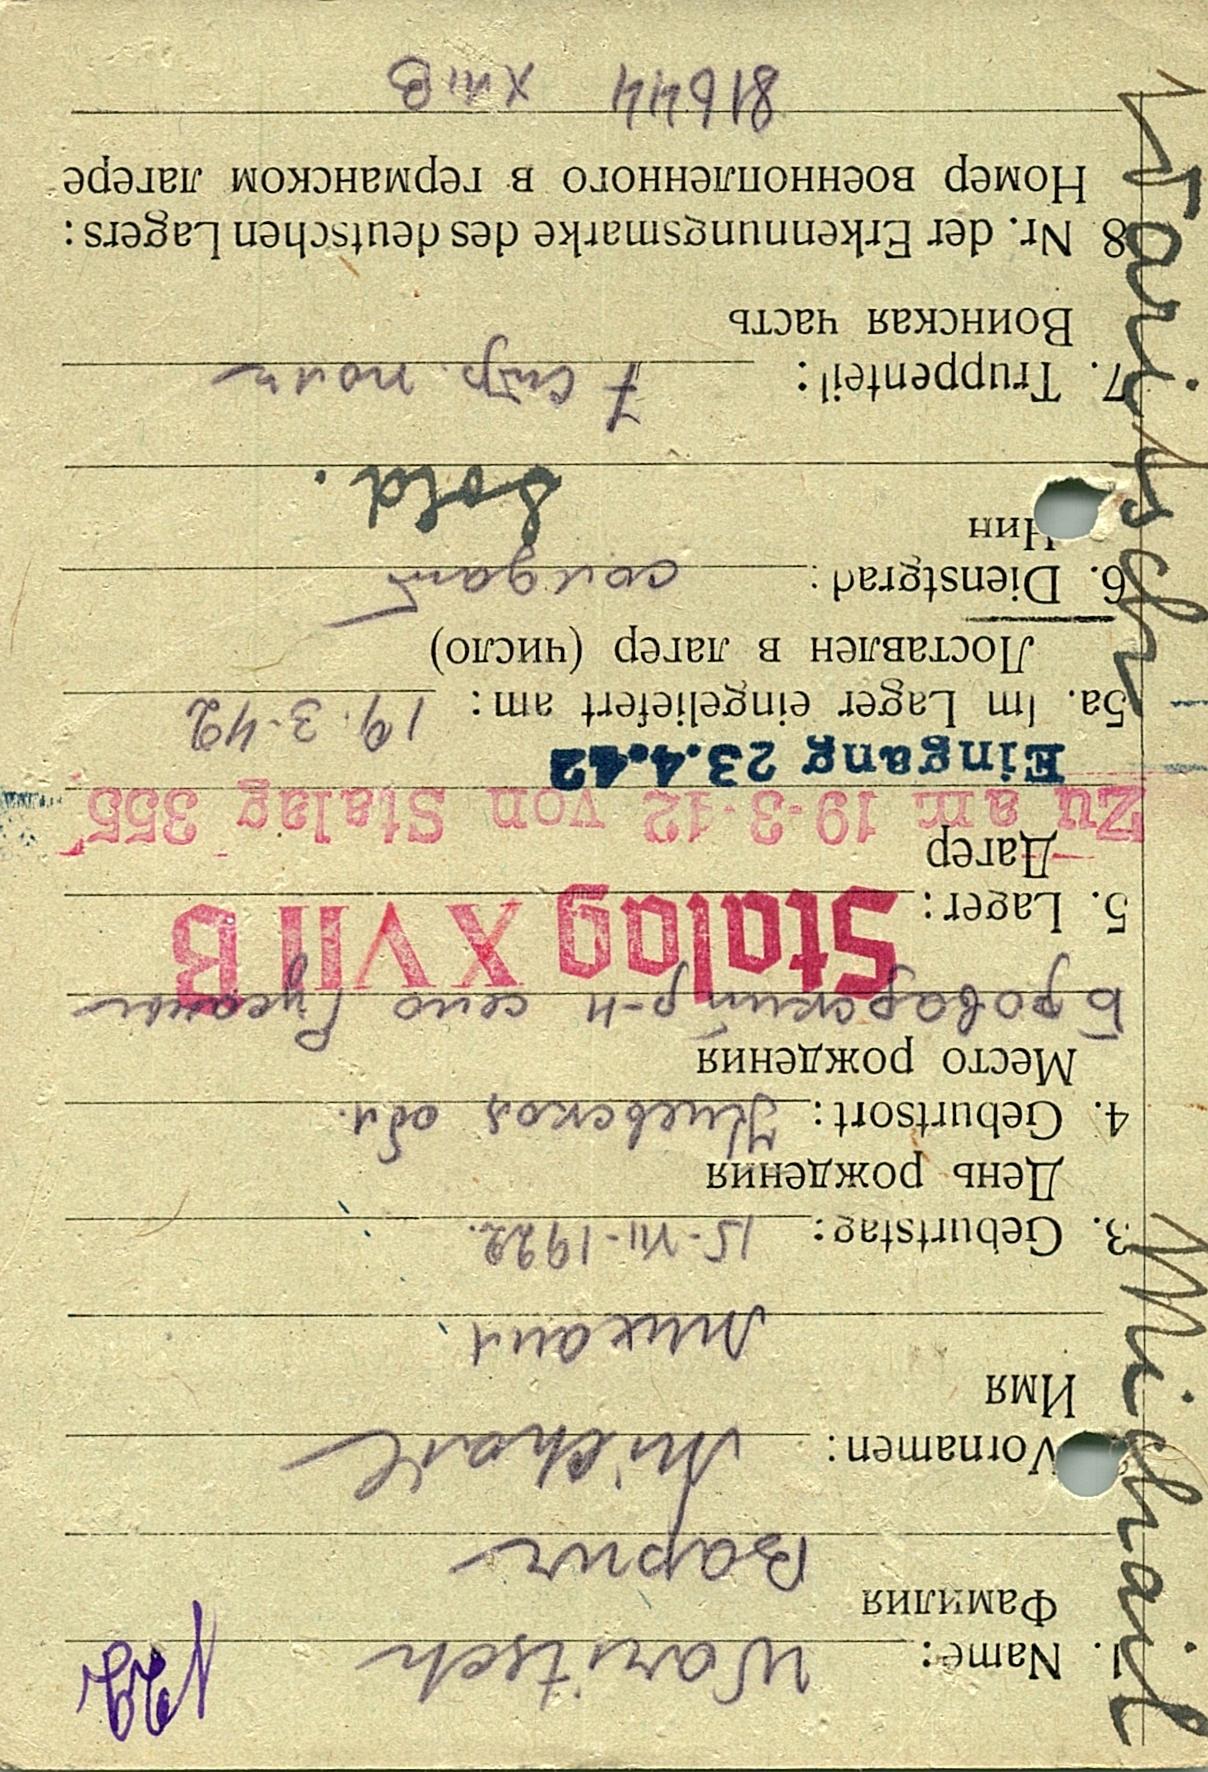 122
1. Name: Waritsch
Фамилия
Варич
Vornamen: Michail
Имя
Михаил
3. Geburtstag: 15-VII-1922.
День рождения
4. Geburtsort: Киевская обл.
Место рождения
Броварский р-н село Русанов
5. Lager: Stalag XVII B
Лагер
Zu am 19-3-42 von Stalag 355
Eingang 23.4.42
5a. Im Lager eingeliefert am: 19.3.42
Доставлен в лагер (число)
6. Dienstgrad: солдат
Чин
Sold.
7. Truppenteil: 7 стр. полк
Воинская часть
8 Nr. der Erkennungsmarke des deutschen Lagers:
Номер военнопленного в германском лагере
81644 XVII B
Waritsch Michail